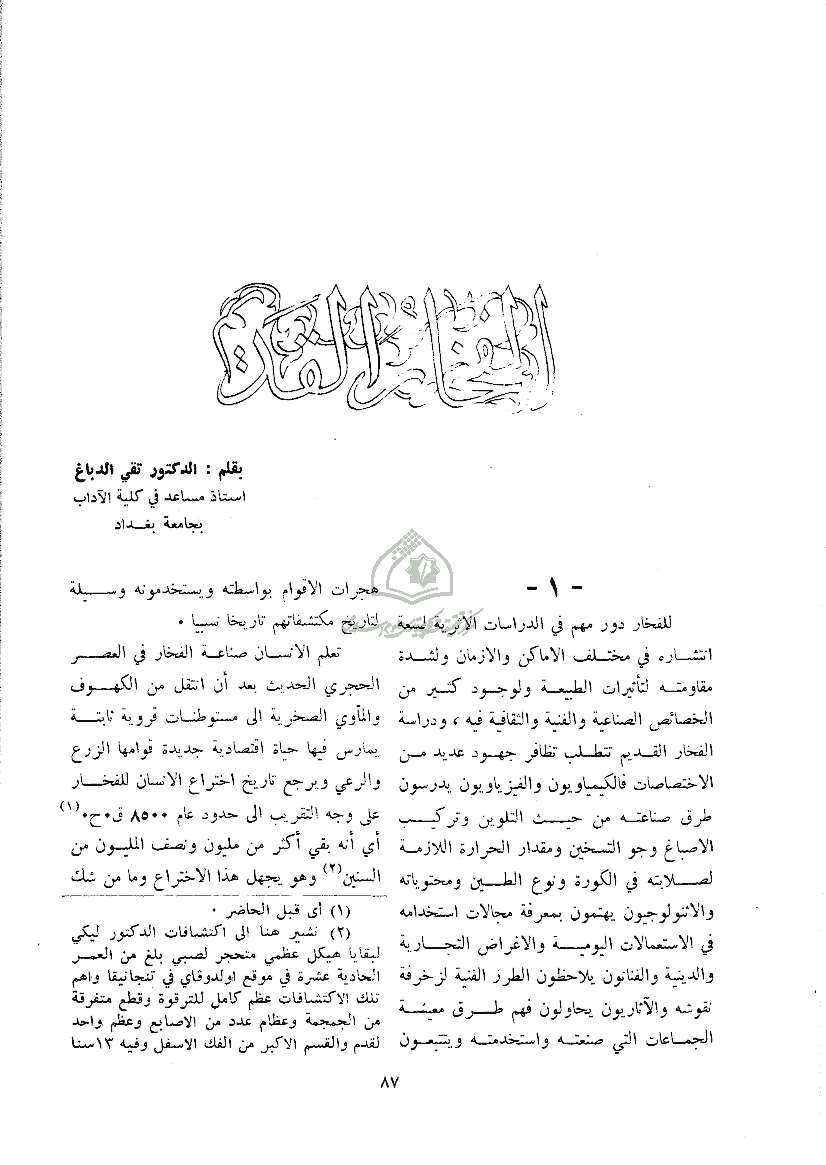 الفخار القديم
بقلم : الدكتور تقي الدباغ
استاذ مساعد في كلية الآداب
بجامعة بغـــداد
- ١ -
للفخار دور مهم في الدراسات الأثرية لسعة
انتشـــاره في مختـــلف الاماكن والازمان ولشدة
مقاومته لتأثيرات الطبيعــة ولوجود كثيـر من
الخصائص الصناعية والفنية والثقافية فيه ، ودراسة
الفخار القديـم تتطلـب تظافر جهـود عديد مــن
الاختصاصات فالكيمياويون والفيزياويون يدرسون
طرق صناعتــه من حيــث التلوين وتركيــب
الاصباغ وجو التسخين ومقدار الحرارة اللازمــة
لصـــلابته في الكورة ونوع الطــين ومحتوياته
والاثنولوجيون يهتمون بمعرفة مجالات استخدامه
في الاستعمالات اليوميــة والاغراض التجــارية
والدينية والفنانون يلاحظون الطرز الفنية لزخرفة
نقوشه والآثاريون يحاولون فهم طــرق معيشــة
الجمــاعات التي صنعتــه واستخدمتــه ويتتبعــون
هجرات الاقوام بواسطته ويستخدمونه وســـيلة
لتاريخ مكتشفاتهم تاريخا نسبيا .
تعلم الانســان صناعـة الفخار في العصــر
الحجري الحديث بعد أن انتقل من الكهــوف
والمآوي الصخرية الى مستوطنــات قروية ثابتــة
يمارس فيها حياة اقتصادية جديدة قوامها الزرع
والرعي ويرجع تاريخ اختراع الانسان للفخــار
على وجه التقريب الى حدود عام ٨٥٠٠ ق.ح.(١)
أي أنه بقي أكثر من مليون ونصف المليـون من
السنين(٢) وهو يجهل هذا الاختراع وما من شك
(١) أى قبل الحاضر .
(٢) نشير هنا الى اكتشافات الدكتور ليكي
لبقايا هيكل عظمي متحجر لصبي بلغ من العمر
الحادية عشرة في موقع اولدوفاي في تنجانيقا واهم
تلك الاكتشافات عظم كامل للترقوة وقطع متفرقة
من الجمجمة وعظام عدد من الاصابع وعظم واحد
لقدم والقسم الاكبر من الفك الاسفل وفيه ١٣سنا
٨٧